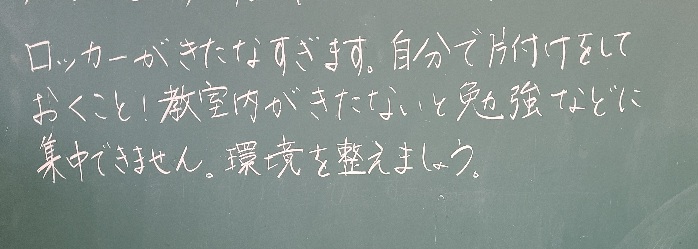 ロッカーがきたなすぎます。自分で片付けをして
おくこと!教室内がきたないと勉強などに
集中できません。環境を整えましょう。